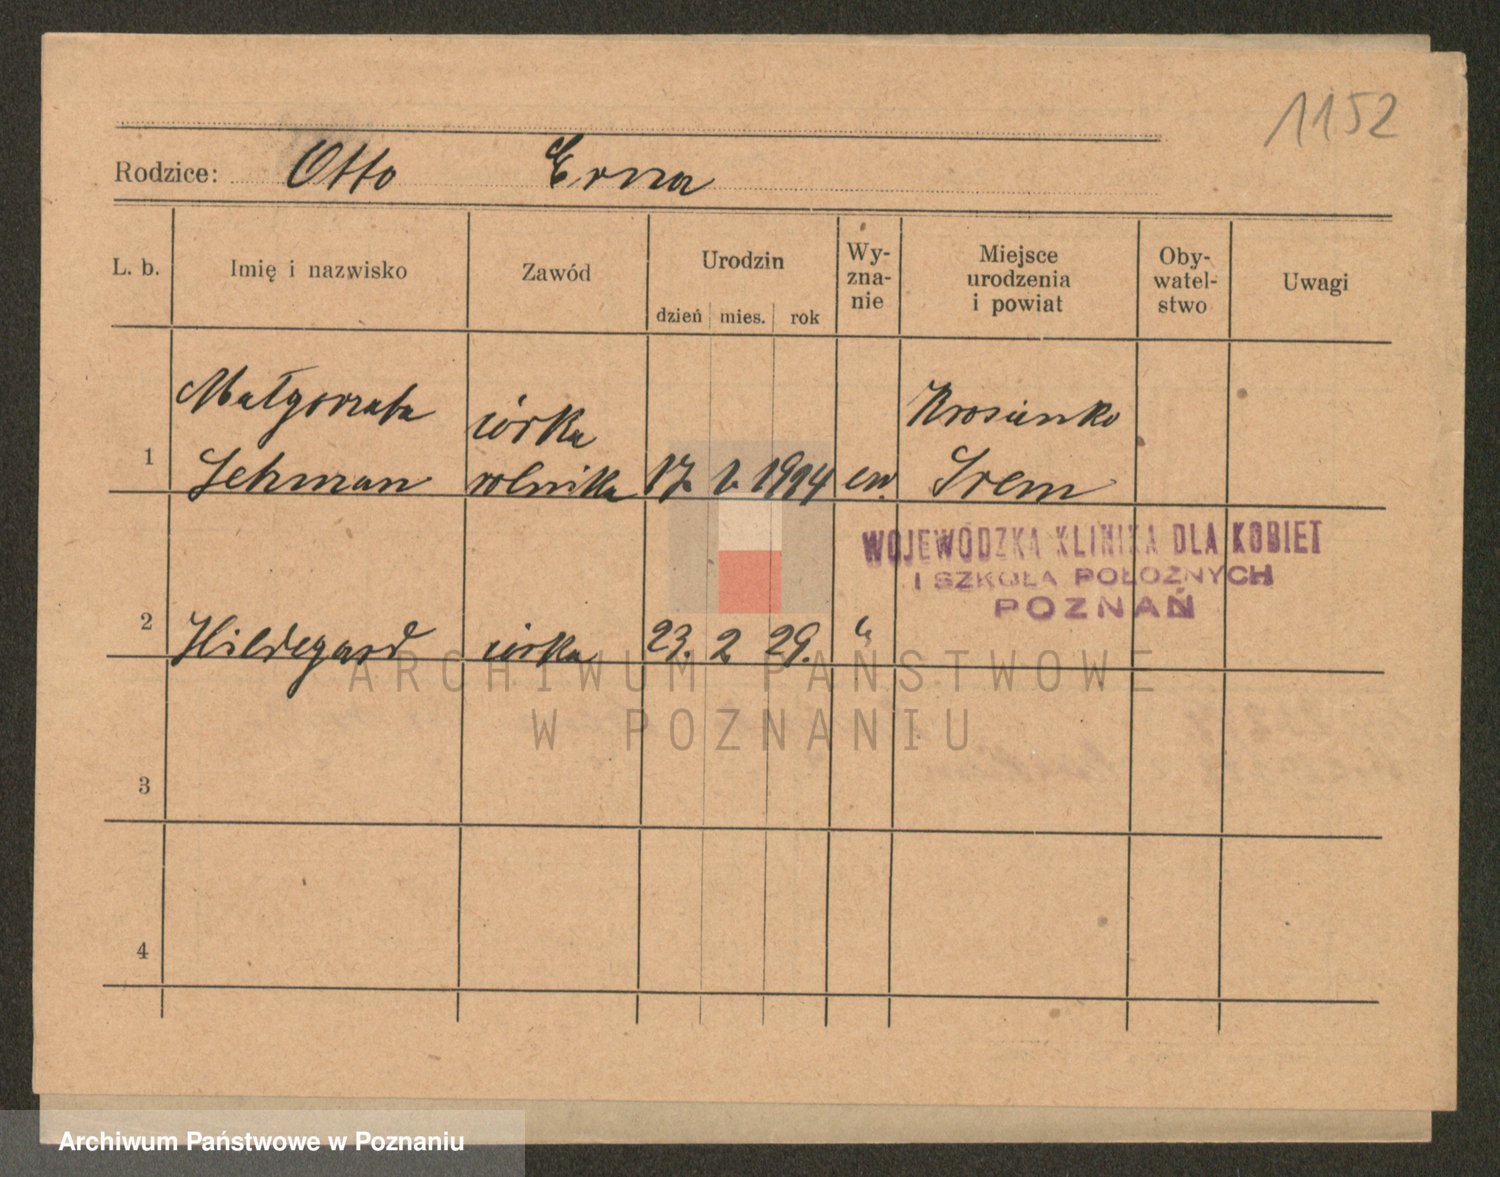 1152
Rodzice: Otto Erna
L. b. Imię i nazwisko Zawód Urodzin dzień mies. rok Wy-zna-nie Miejsce urodzenia i powiat Oby-watel-stwo Uwagi
Małgorzata córka Krosinko
1 Lehman rolnika 17. 1. 1914 ew. Srem
WOJEWÓDZKA KLINIKA DLA KOBIET
I SZKOŁA POŁOŻNYCH
POZNAŃ
2 Hildegard córka 23. 2 29. "
ARCHIWUM PAŃSTWOWE
W POZNANIU
3
4
Archiwum Państwowe w Poznaniu